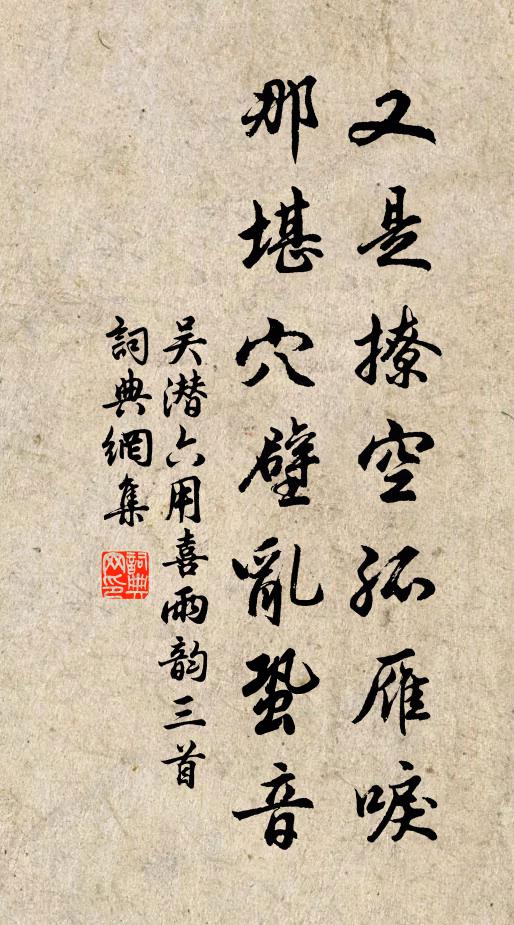 又是撩空孤雁唳
那堪穴壁亂蛩音
吴潜六用喜雨韵三首
詞典網集
詞典网印